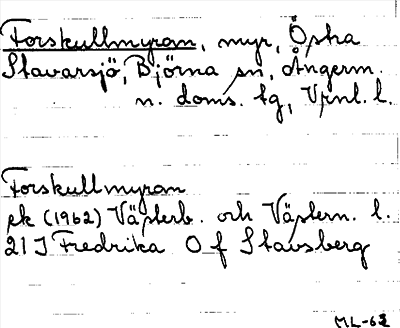 Forskullmyran, myr, Östra
Stavarsjö, Björna sn, Ångerm.
n. doms. tg, Vrnl. l.
Forskullmyran
ek (1962) Västerb. och Västern. l.
21 J Fredrika O f Stavsberg
ML-63